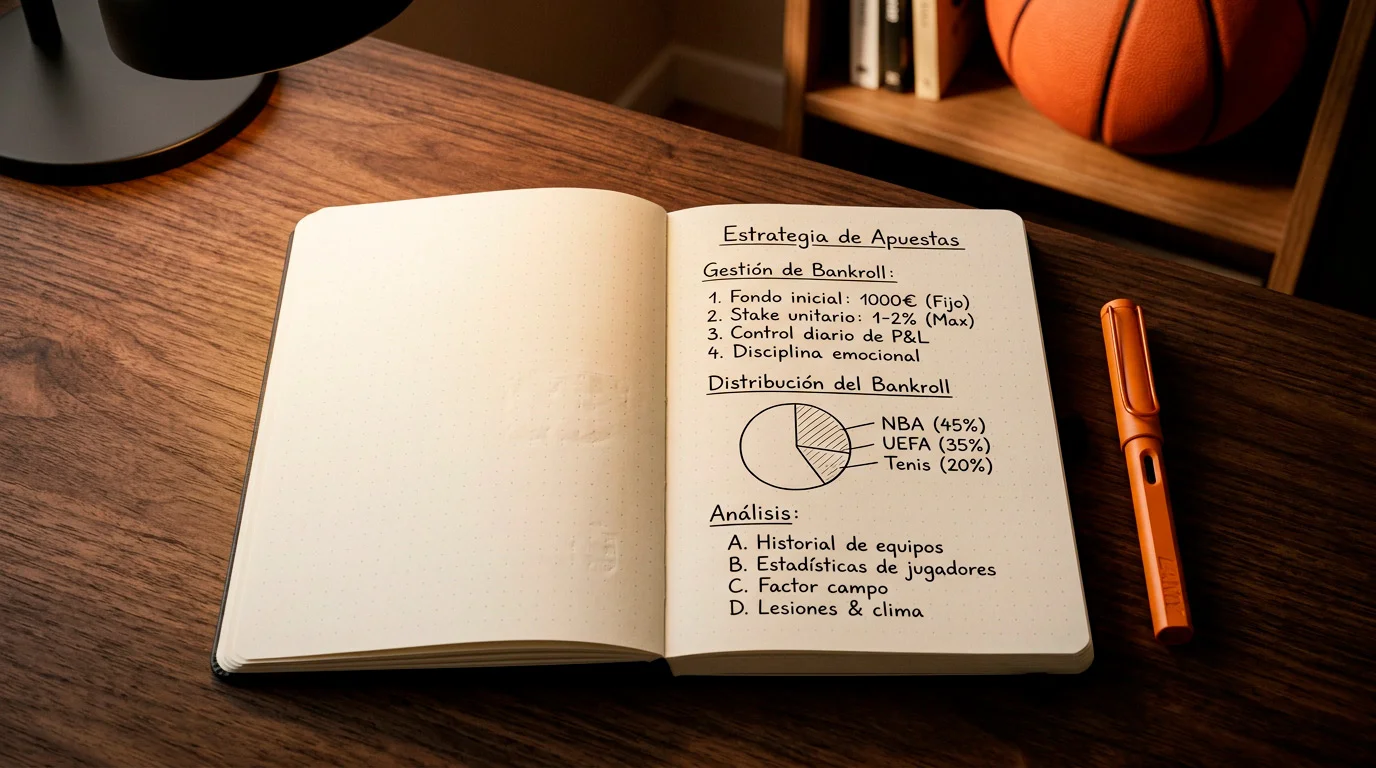 Estrategia de Apuestas
Gestión de Bankroll:
1. Fondo inicial: 1000€ (Fijo)
2. Stake unitario: 1-2% (Max)
3. Control diario de P&L
4. Disciplina emocional
Distribución del Bankroll
NBA (45%)
UEFA (35%)
Tenis (20%)
Análisis:
A. Historial de equipos
B. Estadísticas de jugadores
C. Factor campo
D. Lesiones & clima